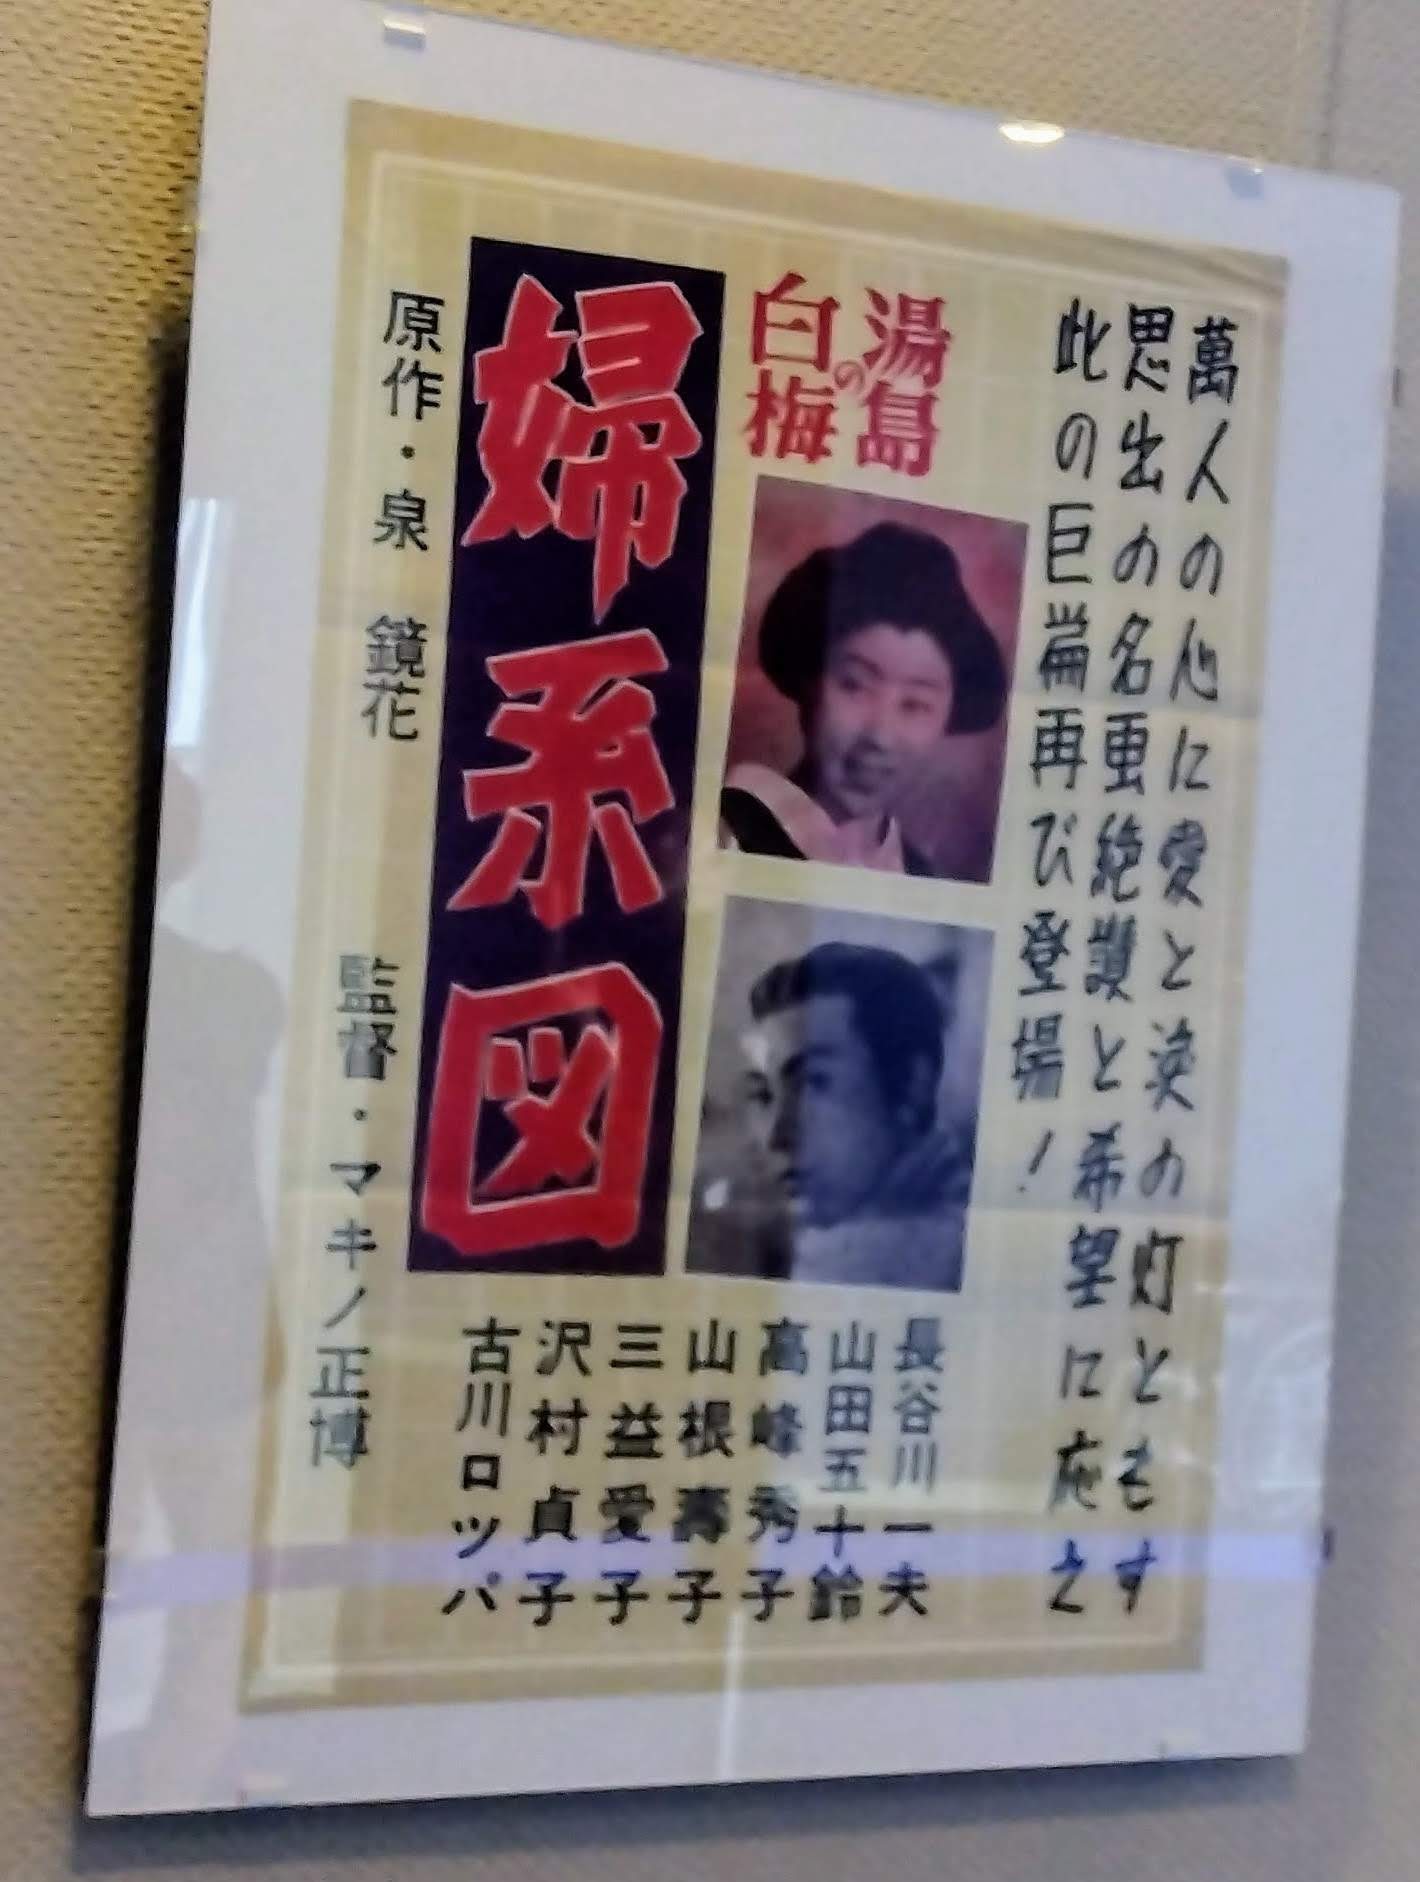 萬人の心に愛と涙の灯ともす
思出の名画絶讃と希望に応え
此の巨篇再び登場!
湯島の
白梅
婦系図
原作・泉 鏡花
監督・マキノ正博
長谷川一夫
山田五十鈴
高峰秀子
山根壽子
三益愛子
沢村貞子
古川ロッパ